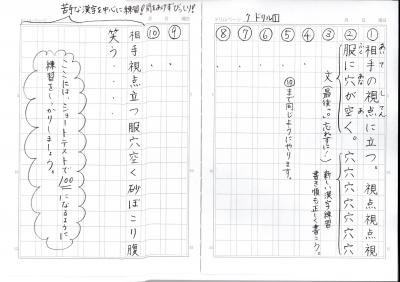 ドリルページ 7 ドリル1
①相手の視点に立つ。 視点視点視
あい て し てん た
②服に穴が空く。 穴穴穴穴穴穴
ふく あな あ
③文(最後“。”忘れずに!)
新しい漢字練習
書き順も正しく書こう。
④ .
⑤ .
⑩まで同じようにやります。
⑥
⑦
⑧
苦手な漢字を中心に練習!
⑨ .
⑩ .
相手視点立つ服穴空く砂ぼこり腹
笑う
ここには、ショートテストで100になるように
練習をしっかりしましょう。